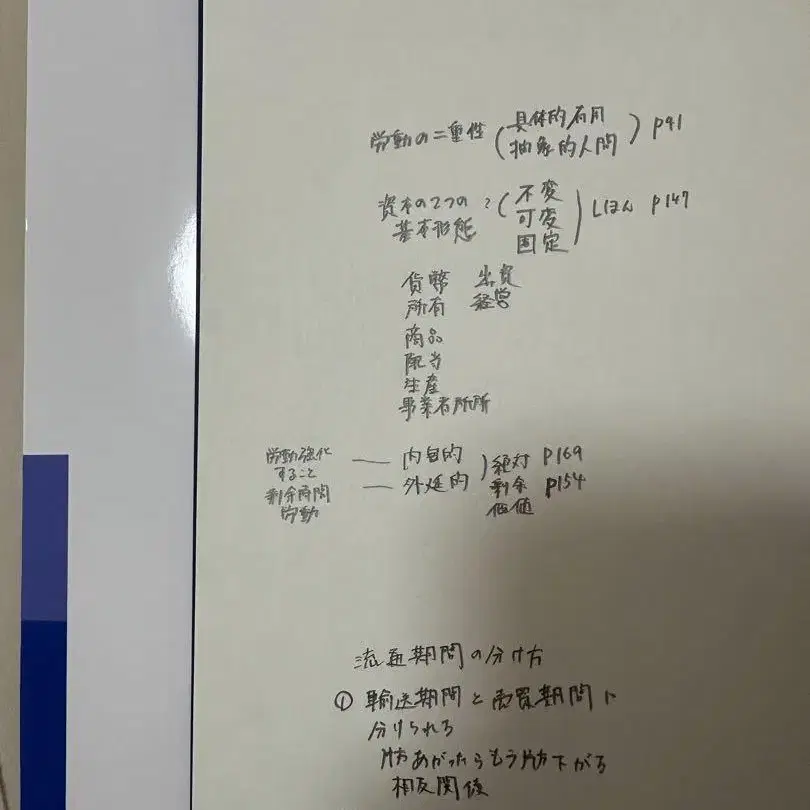 労動の二重性 (具体的有用
抽象的人間) P41
資本の2つの : (不変
基本形態 可変
固定) しほん P147
貨幣 出資
所有 経営
商品
配当
生産
事業者所所
労動強化 — 内包的
すること
剰余時間 — 外延的
労動
) 絶対 P169
剰余 P154
価値
流通期間の分け方
① 輸送期間と売買期間に
分けられる
片方あがったらもう片方下がる
相反関係